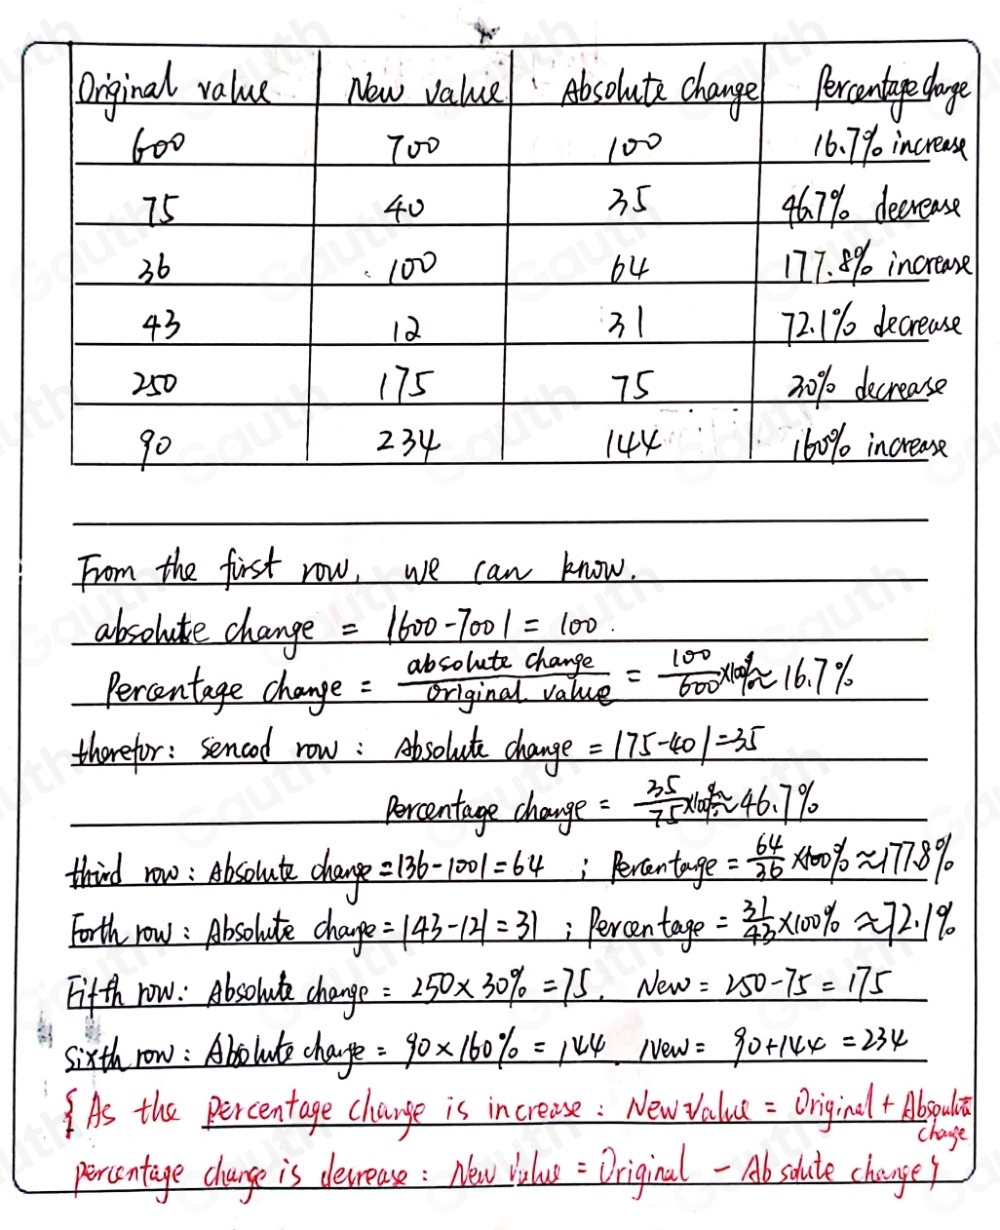 Original value New value Absolute change Percentage change
600 700 100 16.7% increase
75 40 35 46.7% decrease
36 100 64 177.8% increase
43 12 31 72.1% decrease
250 175 75 30% decrease
90 234 144 160% increase
From the first row, we can know.
absolute change = |600-700| = 100.
Percentage change = absolute change / original value = 100/600 ×100% ≈ 16.7%
therefor: sencod row: Absolute change = |75-40| = 35
Percentage change = 35/75 ×100% ≈ 46.7%
third row: Absolute change = |36-100| = 64 ; Percentage = 64/36 ×100% ≈ 177.8%
Forth row: Absolute change = |43-12| = 31 ; Percentage = 31/43 ×100% ≈ 72.1%
Fifth row: Absolute change = 250×30% = 75. New = 250-75 = 175
Sixth row: Absolute change = 90×160% = 144. New = 90+144 = 234
{As the percentage change is increase: New value = Original + Absoulute change
percentage change is decrease: New value = Original - Absolute change}
Gauth